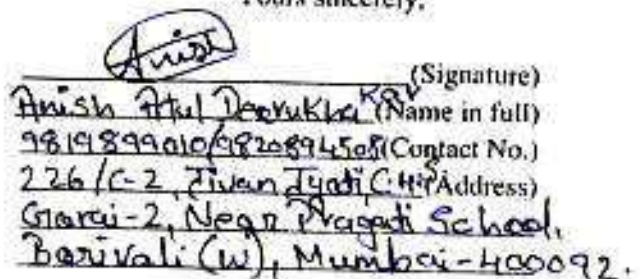 Yours sincerely,
Anish
(Signature)
Anish Atul Deorukhakar (Name in full)
9819899010/9820894508 (Contact No.)
226/C-2, Jivan Jyoti, C.H.S (Address)
Gorai-2, Near Pragati School,
Borivali (W), Mumbai-400092.